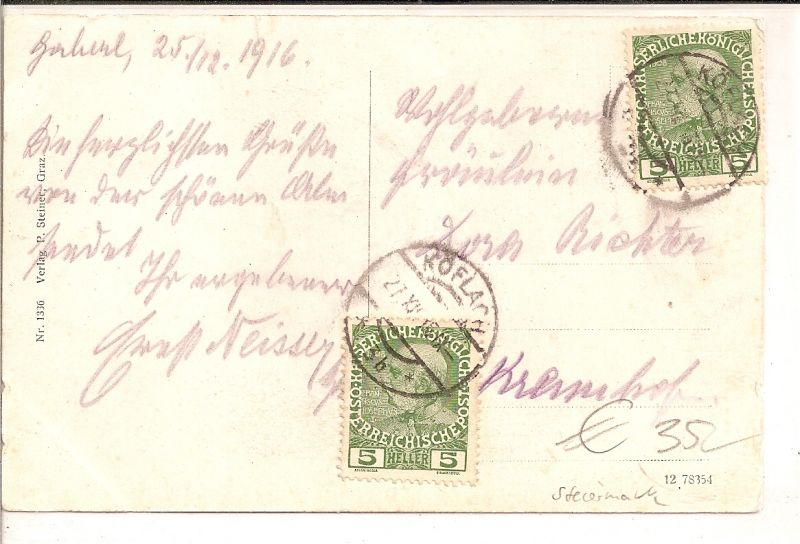 Gaberl, 25./12. 1916.
Die herzlichsten Grüße
von der schönen Alm
sendet
Ihr ergebener
Ernst
Wohlgeboren
Fräulein
Dora Richter
Nr. 1336 Verlag P. Steiner, Graz.
KÖFLACH
KAISERLICHE KÖNIGLICHE
ÖSTERREICHISCHE POST
5 HELLER 5
KÖFLACH
27 XII
KAISERLICHE KÖNIGLICHE
ÖSTERREICHISCHE POST
5 HELLER 5
€ 35
12 78354
Steiermark